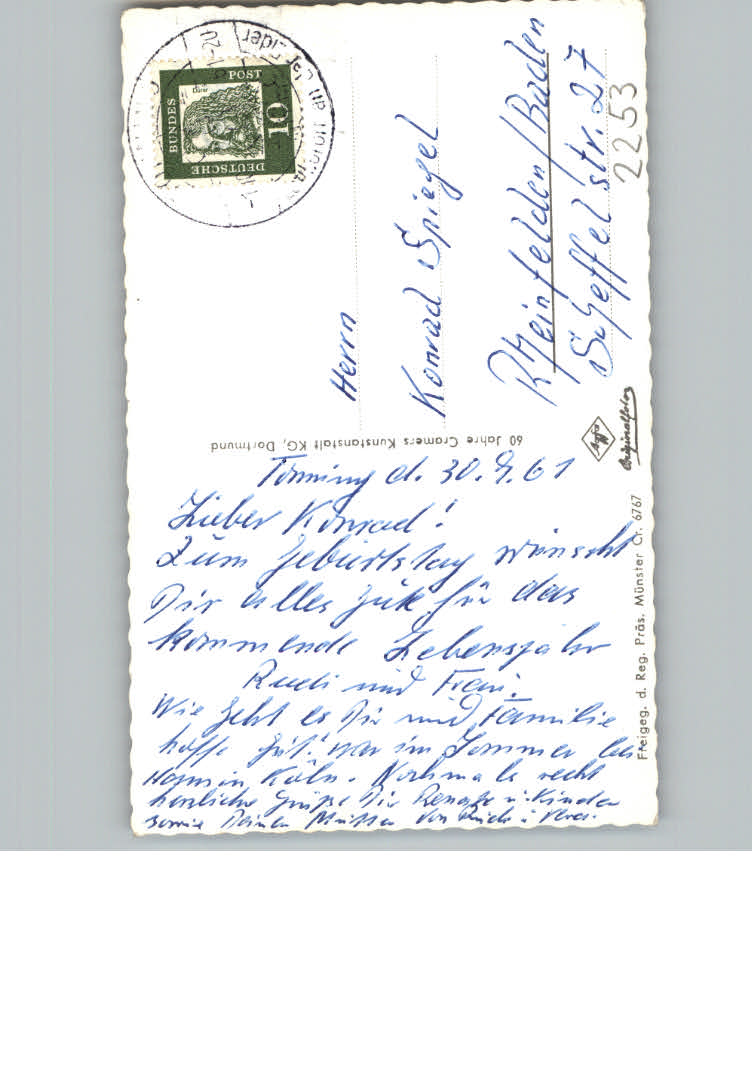 Tönning d. 30.9.61
Lieber Konrad!
Zum Geburtstag wünscht
Dir alles gute für das
kommende Lebensjahr
Rudi und Frau.
Wie geht es Dir und Familie
hoffe gut! war im Sommer bei
in Köln. Nochmals recht
herzliche Grüße Dir Renate u. Kinder
sowie Deinen von Rudi u.
Herrn
Konrad Spiegel
Rheinfelden/Baden
Scheffelstr. 27
2253
DEUTSCHE
BUNDES
POST
10
Dürer
an der Eider
60 Jahre Cramers Kunstanstalt KG, Dortmund
Agfa
Originalfoto
Freigeg. d. Reg. Präs. Münster Cr. 6767